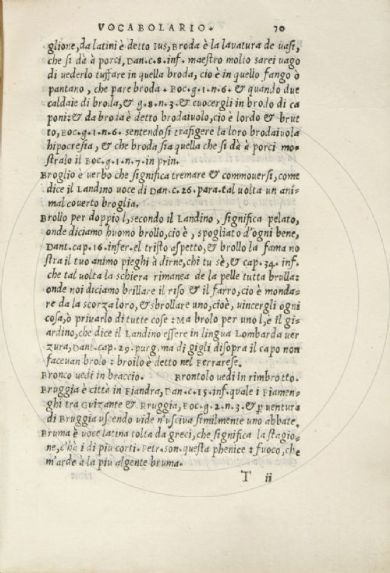 VOCABOLARIO. 70
glione, da latini è detto Ius, Broda è la lavatura de uasi,
che si dà a porci, Dan.c.8.inf. maestro molto sarei uago
di uederlo tuffare in quella broda, cio è in quello fango ò
pantano, che pare broda. Boc.g.1.n.6. & quando due
caldaie di broda, & g.8.n.3. & cuocergli in brolo di ca
poni: & da broia è detto brodaiuolo, cio è lordo & brut
to, Boc.g.1.n.6. sentendosi trafigere la loro brodaiuola
hipocresia, & che broda sia quella che si dà è porci mo
stralo il Boc.g.1.n.7. in prin.
Broglio è verbo che significa tremare & commouersi, come
dice il Landino uoce di Dan.c.26.para.tal uolta un ani
mal couerto broglia.
Brollo per doppio l, secondo il Landino, significa pelato,
onde diciamo huomo brollo, cio è, spogliato d'ogni bene,
Dant.cap.16.infer.el tristo aspetto, & brollo la fama no
stra il tuo animo pieghi à dirne, chi tu sè, & cap.34. inf.
che tal uolta la schiera rimanea de la pelle tutta brulla:
onde noi diciamo brillare il riso & il farro, cio è monda-
re da la scorza loro, & sbrollare uno, cioè, uincergli ogni
cosa, ò priuarlo di tutte cose: Ma brolo per uno l, e il gi-
ardino, che dice il Landino essere in lingua Lombarda uer
zura, Dant.cap.29.purg.ma di gigli disopra il capo non
faceuan brolo: broilo è detto nel Ferrarese.
Bronco uedi in braccio. Brontolo uedi in rimbrotto.
Bruggia è città in Fiandra, Dan.c.15.inf.quale i Fiamen-
ghi tra Guizante & Bruggia, Boc.g.2.n.3. & p uentura
di Bruggia uscendo uide n'usciua similmente uno abbate.
Bruma è uoce latina tolta da greci, che significa la stagio-
ne, c'ha i di piu corti. Pet. son.questa phenice: fuoco, che
m'arde à la piu algente bruma.
T ii